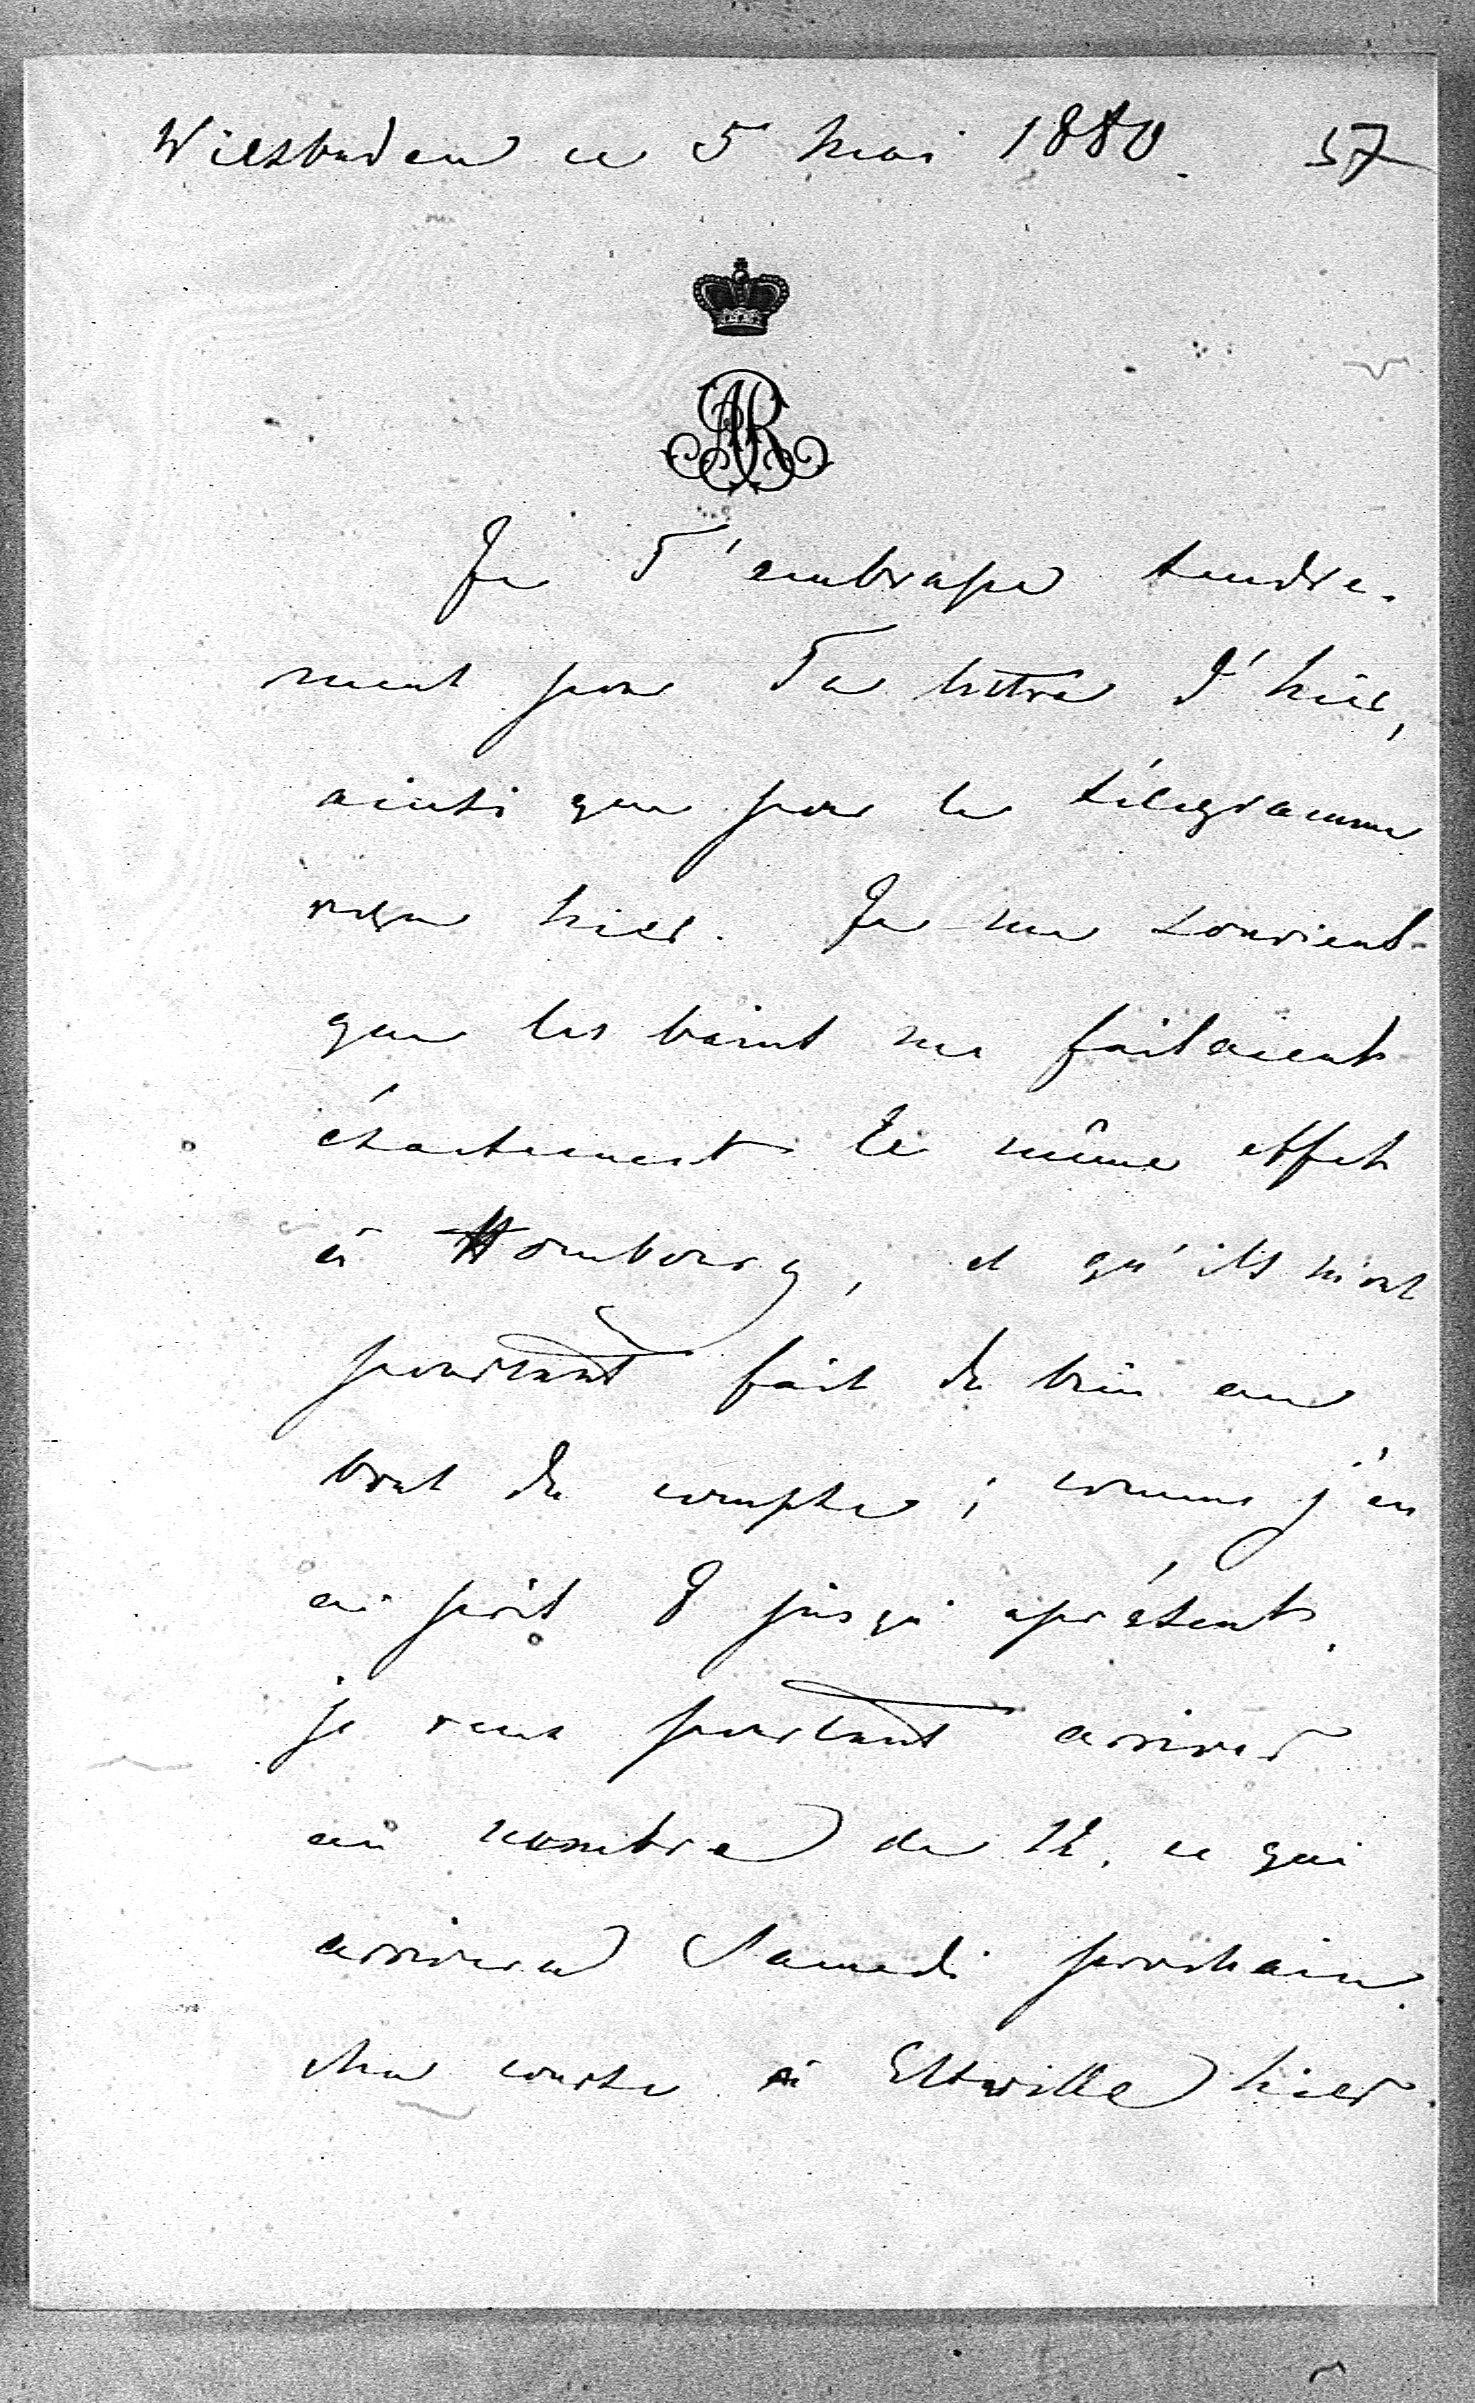 Wiesbaden ce 5 Mai 1880. 57
AR
Je T'embrasse tendre-
ment pour Ta lettre d'hier,
ainsi que pour le télégramme
reçu hier. Je me souviens
que les bains me faisaient
éxactement le même effet
à Hombourg, et qu'ils m'ont
pourtant fait du bien au
bout du compte; comme j'en
ai pris 8 jusqu'aprésent,
je veux pourtant arriver
au nombre de 12, ce qui
arrivera Samedi prochain.
Ma course à Eltville hier